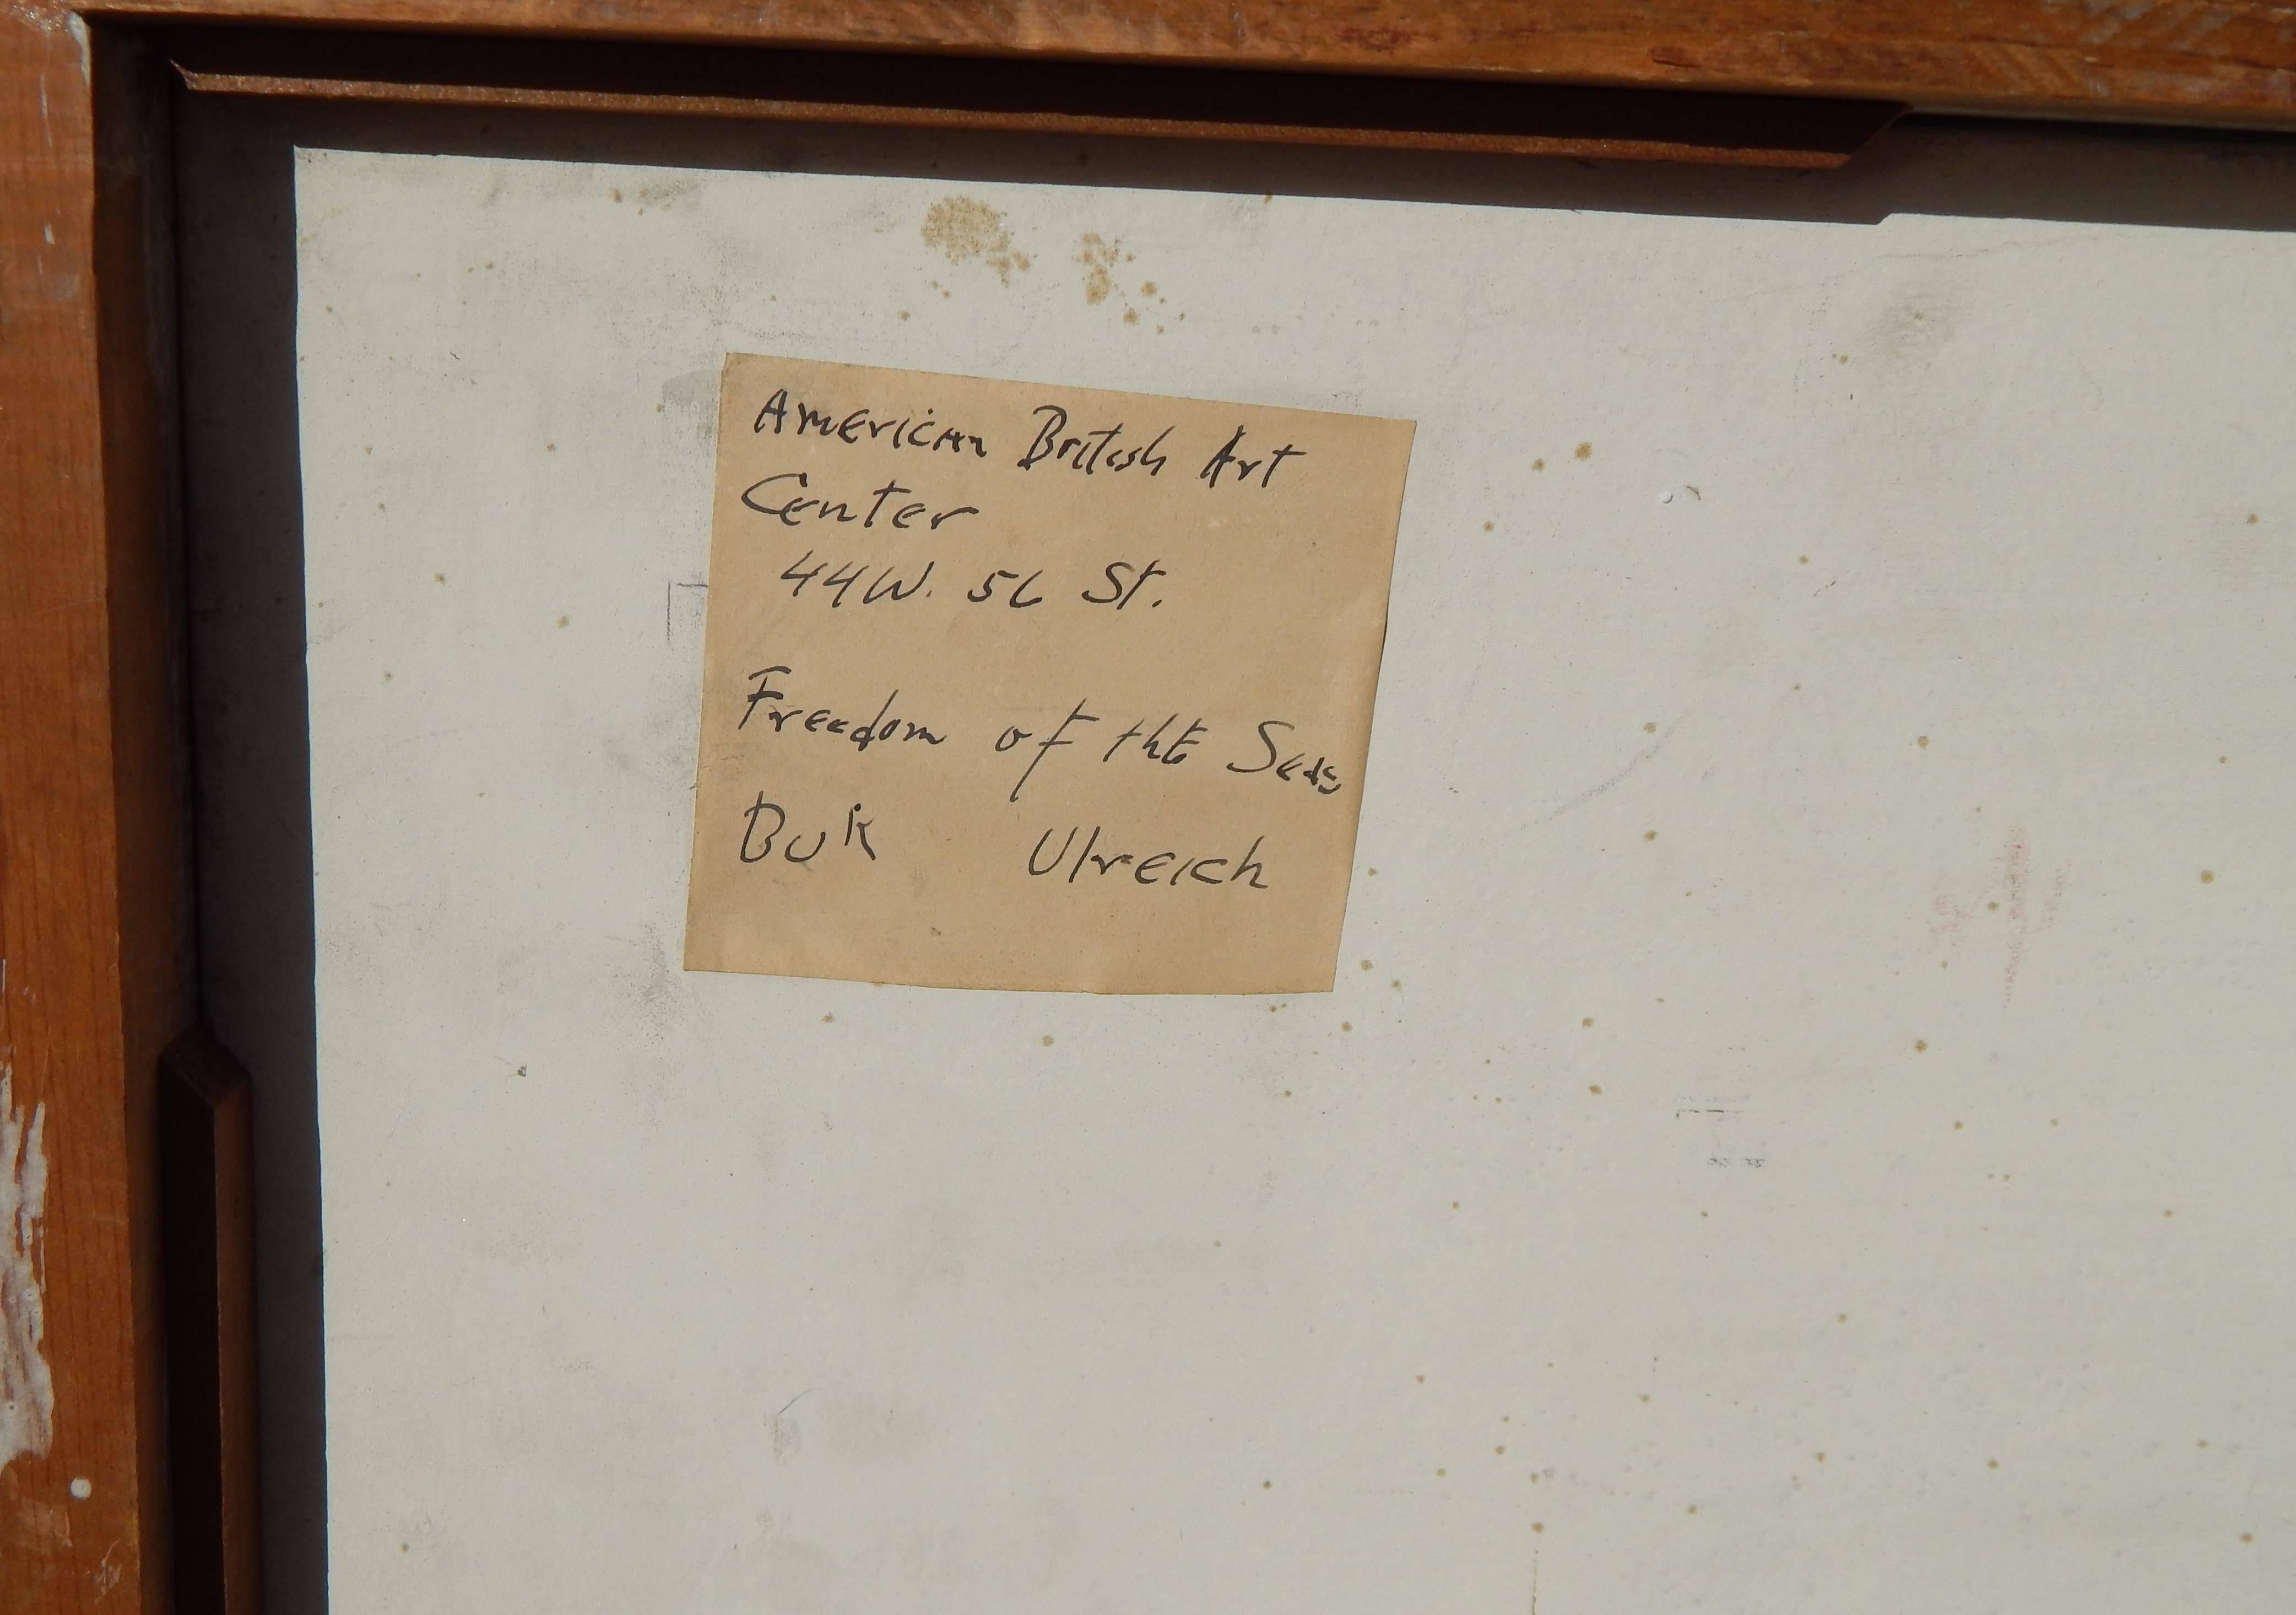 American British Art
Center
44 W. 56 St.
Freedom of the Seas
Buk Ulreich